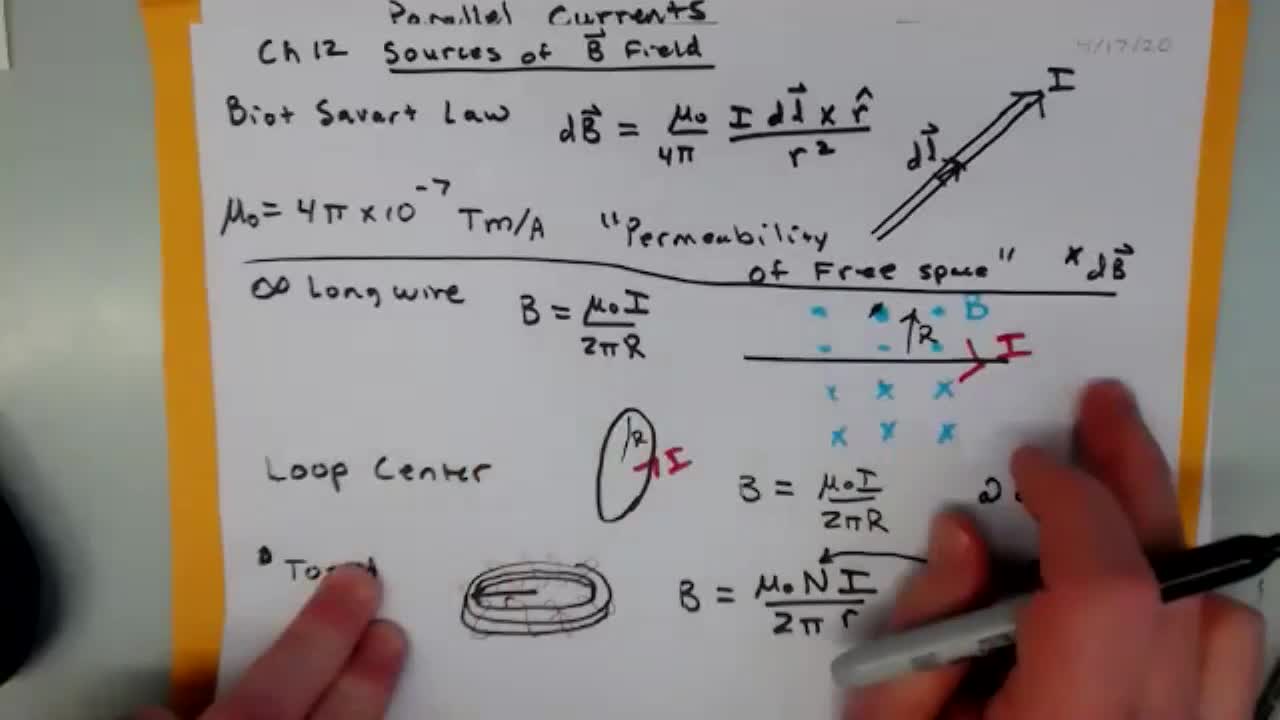 Parallel Currents
Ch 12 Sources of B⃗ Field
4/17/20
Biot Savart Law dB⃗ = μ₀/4π I dl⃗ x r̂ / r²
I
dl⃗
μ₀ = 4π × 10⁻⁷ Tm/A "Permeability
of Free space" × dB⃗
∞ Long wire B = μ₀I / 2πR
B
R
I
x x x
x x x
Loop Center R I B = μ₀I / 2πR
B = μ₀ N I / 2π r